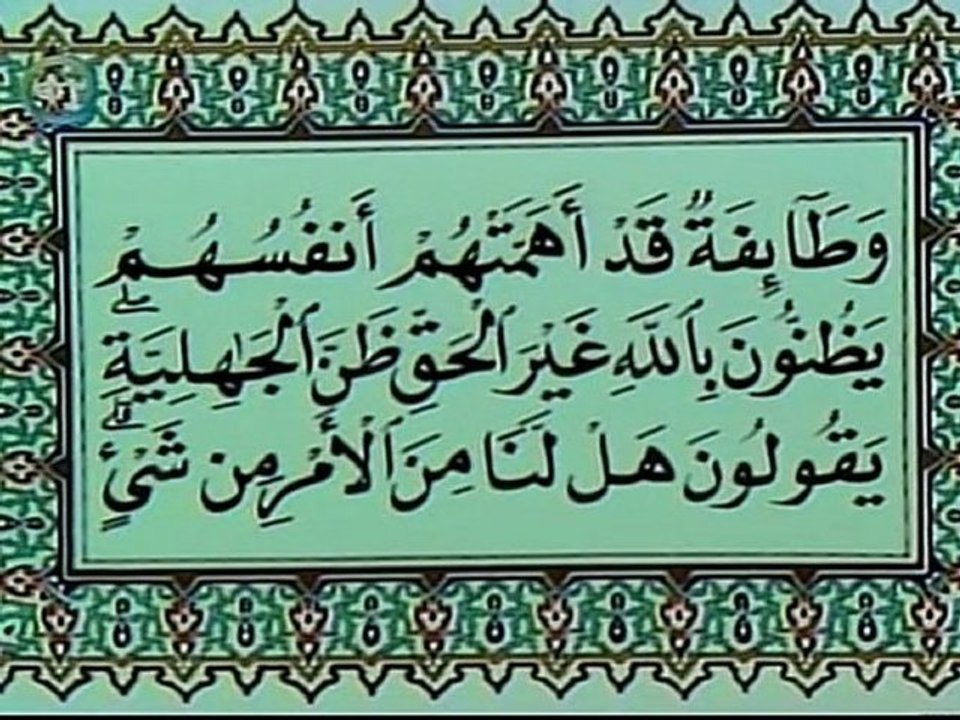 وَطَآئِفَةٌ قَدْ أَهَمَّتْهُمْ أَنفُسُهُمْ
يَظُنُّونَ بِٱللَّهِ غَيْرَ ٱلْحَقِّ ظَنَّ ٱلْجَٰهِلِيَّةِ ۖ
يَقُولُونَ هَل لَّنَا مِنَ ٱلْأَمْرِ مِن شَىْءٍ ۗ